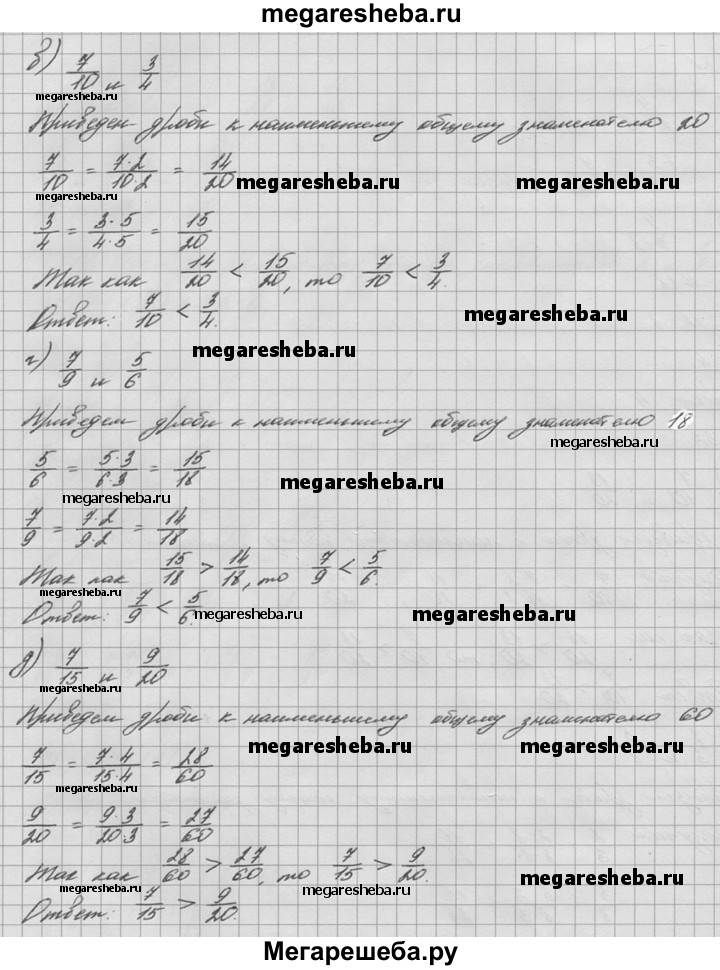 megaresheba.ru
в) 7/10 и 3/4
megaresheba.ru
Приведем дроби к наименьшему общему знаменателю 20
7/10 = 7·2/10·2 = 14/20
megaresheba.ru megaresheba.ru megaresheba.ru
3/4 = 3·5/4·5 = 15/20
Так как 14/20 < 15/20, то 7/10 < 3/4.
Ответ: 7/10 < 3/4.
megaresheba.ru
megaresheba.ru
г) 7/9 и 5/6
Приведем дроби к наименьшему общему знаменателю 18
megaresheba.ru
5/6 = 5·3/6·3 = 15/18
megaresheba.ru megaresheba.ru
7/9 = 7·2/9·2 = 14/18
Так как 15/18 > 14/18, то 7/9 < 5/6.
megaresheba.ru
Ответ: 7/9 < 5/6.
megaresheba.ru megaresheba.ru
д) 7/15 и 9/20
megaresheba.ru
Приведем дроби к наименьшему общему знаменателю 60
megaresheba.ru megaresheba.ru
7/15 = 7·4/15·4 = 28/60
megaresheba.ru
9/20 = 9·3/20·3 = 27/60
Так как 28/60 > 27/60, то 7/15 > 9/20.
megaresheba.ru megaresheba.ru megaresheba.ru
Ответ: 7/15 > 9/20.
Мегарешеба.ру